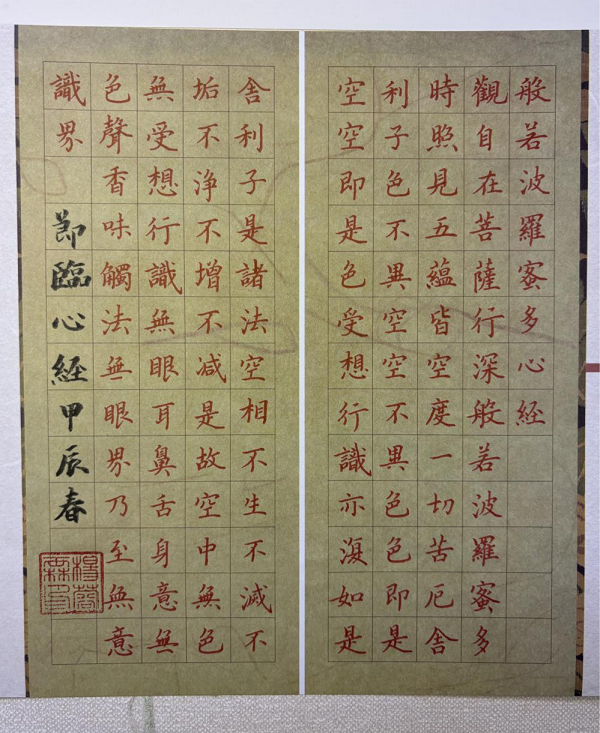 般若波羅蜜多心經
觀自在菩薩行深般若波羅蜜多
時照見五蘊皆空度一切苦厄舍
利子色不異空空不異色色即是
空空即是色受想行識亦復如是
舍利子是諸法空相不生不滅不
垢不淨不增不減是故空中無色
無受想行識無眼耳鼻舌身意無
色聲香味觸法無眼界乃至無意
識界
節臨心經甲辰春